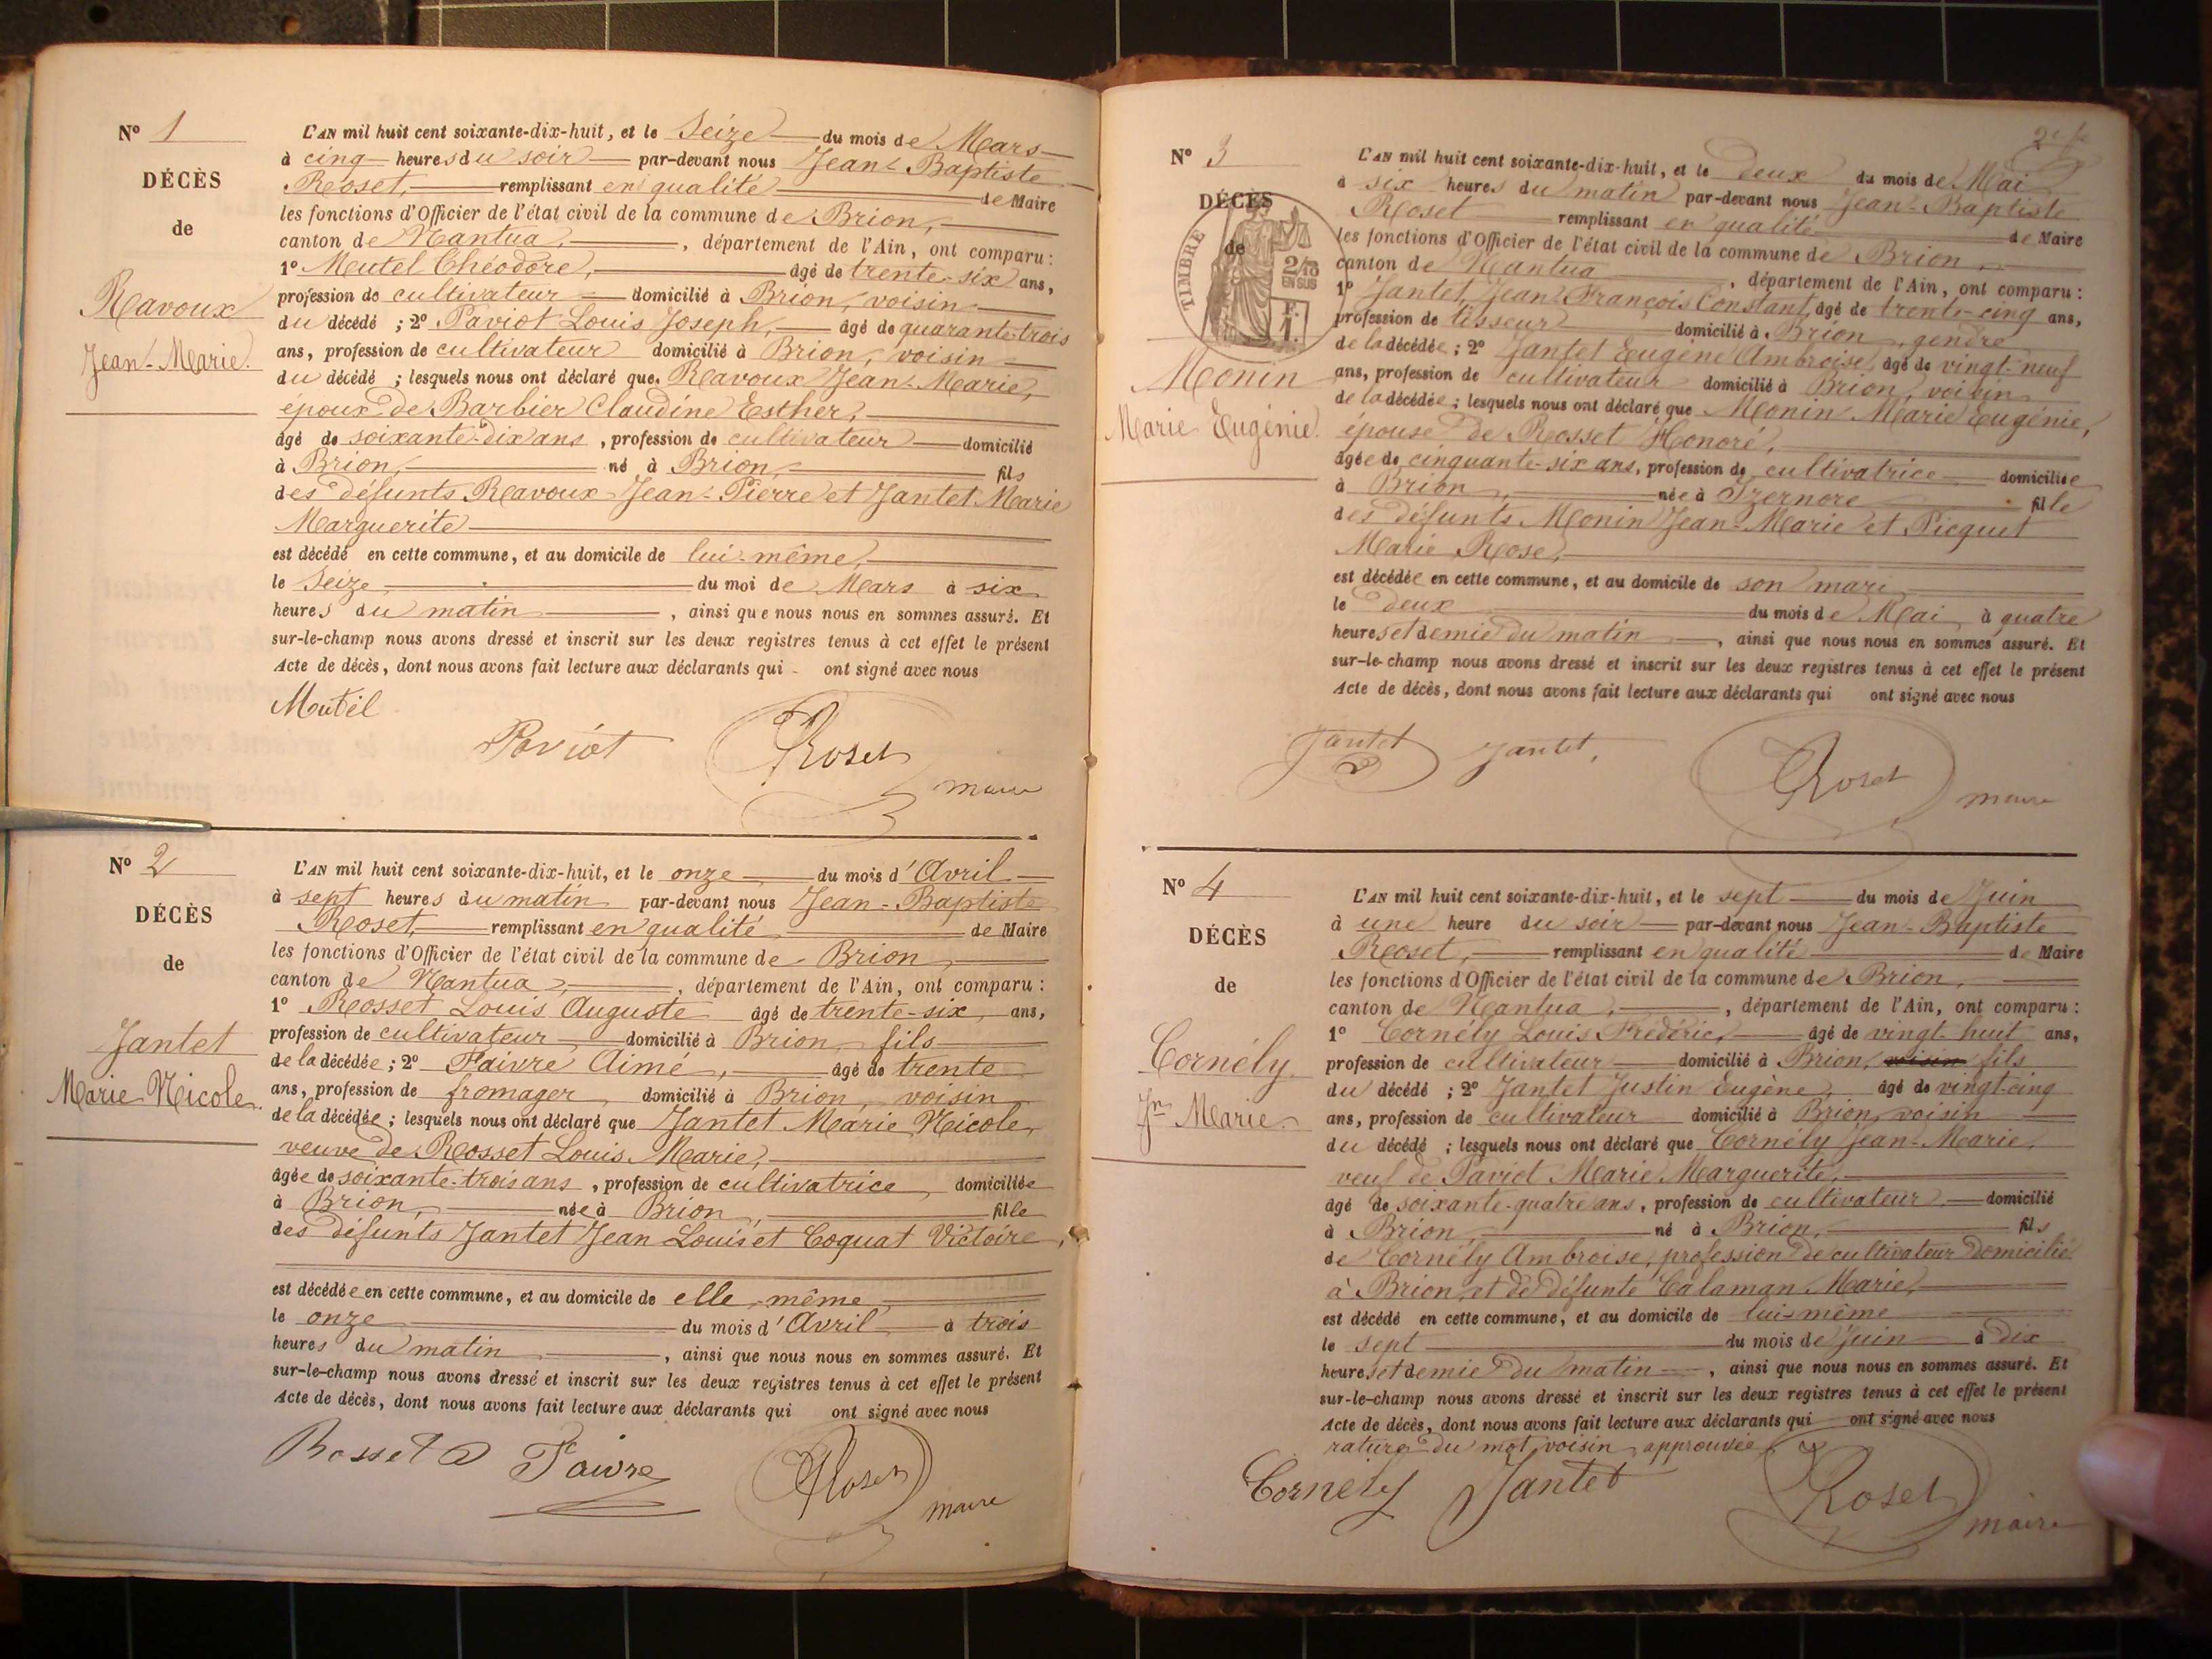 N° 1
DÉCÈS
de
Ravoux
Jean-Marie.
L'AN mil huit cent soixante-dix-huit, et le Seize du mois de Mars
à cinq heures du soir par-devant nous Jean-Baptiste
Roset, remplissant en qualité de Maire
les fonctions d'Officier de l'état civil de la commune de Brion,
canton de Nantua, , département de l'Ain, ont comparu :
1° Meutel Théodore, âgé de trente-six ans,
profession de cultivateur domicilié à Brion, voisin
du décédé ; 2° Paviot Louis Joseph, âgé de quarante-trois
ans, profession de cultivateur domicilié à Brion, voisin
du décédé ; lesquels nous ont déclaré que Ravoux Jean-Marie,
époux de Barbier Claudine Esther,
âgé de soixante-dix ans , profession de cultivateur domicilié
à Brion, né à Brion, fils
des défunts Ravoux Jean-Pierre et Jantet Marie
Marguerite
est décédé en cette commune, et au domicile de lui-même,
le Seize du moi de Mars à six
heures du matin , ainsi que nous nous en sommes assuré. Et
sur-le-champ nous avons dressé et inscrit sur les deux registres tenus à cet effet le présent
Acte de décès, dont nous avons fait lecture aux déclarants qui - ont signé avec nous
Mutel
Paviot Roset
maire
N° 2
DÉCÈS
de
Jantet
Marie Nicole.
L'AN mil huit cent soixante-dix-huit, et le onze du mois d'Avril
à sept heures du matin par-devant nous Jean-Baptiste
Roset, remplissant en qualité de Maire
les fonctions d'Officier de l'état civil de la commune de Brion,
canton de Nantua, , département de l'Ain, ont comparu :
1° Rosset Louis Auguste âgé de trente-six ans,
profession de cultivateur domicilié à Brion, fils
de la décédée ; 2° Faivre Aimé, âgé de trente
ans, profession de fromager domicilié à Brion, voisin
de la décédée ; lesquels nous ont déclaré que Jantet Marie Nicole,
veuve de Rosset Louis Marie,
âgée de soixante-trois ans , profession de cultivatrice domiciliée
à Brion, née à Brion, fille
des défunts Jantet Jean Louis et Coquat Victoire,
est décédée en cette commune, et au domicile de elle-même
le onze du mois d'Avril à trois
heures du matin , ainsi que nous nous en sommes assuré. Et
sur-le-champ nous avons dressé et inscrit sur les deux registres tenus à cet effet le présent
Acte de décès, dont nous avons fait lecture aux déclarants qui ont signé avec nous
Rosset Faivre Roset
maire
N° 3
DÉCÈS
de
TIMBRE
2/10
EN SUS
F.
1.
Monin
Marie Eugénie.
L'AN mil huit cent soixante-dix-huit, et le deux du mois de Mai
à six heures du matin par-devant nous Jean-Baptiste
Roset remplissant en qualité de Maire
les fonctions d'Officier de l'état civil de la commune de Brion
canton de Nantua , département de l'Ain, ont comparu :
1° Jantet Jean François Constant, âgé de trente-cinq ans,
profession de tisseur domicilié à Brion, gendre
de la décédée ; 2° Jantet Eugène Ambroise, âgé de vingt-neuf
ans, profession de cultivateur domicilié à Brion, voisin
de la décédée ; lesquels nous ont déclaré que Monin Marie Eugénie,
épouse de Rosset Honoré,
âgée de cinquante-six ans, profession de cultivatrice domiciliée
à Brion, née à Izernore fille
des défunts Monin Jean-Marie et Picquet
Marie Rose,
est décédée en cette commune, et au domicile de son mari
le deux du mois de Mai à quatre
heures et demie du matin , ainsi que nous nous en sommes assuré. Et
sur-le-champ nous avons dressé et inscrit sur les deux registres tenus à cet effet le présent
Acte de décès, dont nous avons fait lecture aux déclarants qui ont signé avec nous
Jantet Jantet, Roset
maire
N° 4
DÉCÈS
de
Cornély
Jn Marie.
L'AN mil huit cent soixante-dix-huit, et le sept du mois de Juin
à une heure du soir par-devant nous Jean-Baptiste
Roset, remplissant en qualité de Maire
les fonctions d'Officier de l'état civil de la commune de Brion,
canton de Nantua, , département de l'Ain, ont comparu :
1° Cornély Louis Frédéric, âgé de vingt-huit ans,
profession de cultivateur domicilié à Brion, voisin fils
du décédé ; 2° Jantet Justin Eugène, âgé de vingt-cinq
ans, profession de cultivateur domicilié à Brion, voisin
du décédé ; lesquels nous ont déclaré que Cornély Jean-Marie,
veuf de Paviot Marie Marguerite,
âgé de soixante-quatre ans, profession de cultivateur domicilié
à Brion, né à Brion, fils
de Cornély Ambroise, profession de cultivateur domicilié
à Brion, et de défunte Calaman Marie,
est décédé en cette commune, et au domicile de lui-même
le sept du mois de Juin à dix
heures et demie du matin , ainsi que nous nous en sommes assuré. Et
sur-le-champ nous avons dressé et inscrit sur les deux registres tenus à cet effet le présent
Acte de décès, dont nous avons fait lecture aux déclarants qui ont signé avec nous
rature du mot voisin approuvée
Cornély Jantet Roset
maire